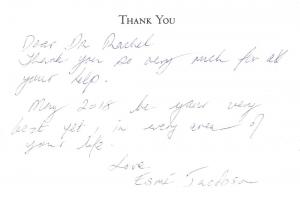 THANK YOU
Dear Dr Rachel
Thank you so very much for all
your help.
May 2018 be your very
best yet, in every area of
your life.
Love
Esmé Jacobson